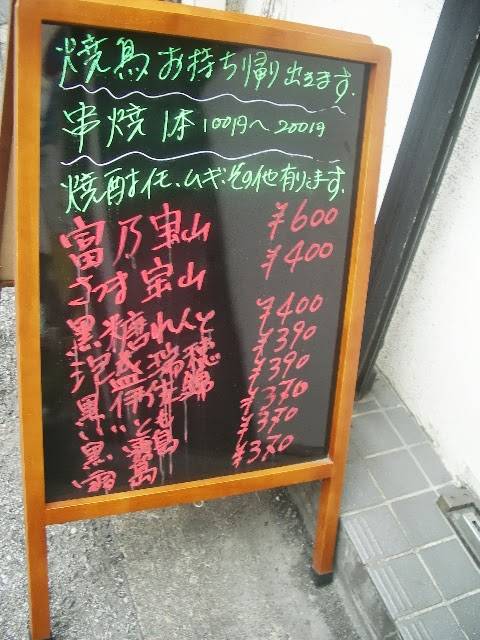 焼鳥お持ち帰り出来ます。
串焼1本100円〜200円
焼酎イモ、ムギ、その他有ります。
富乃宝山 ¥600
さつま宝山 ¥400
黒糖れんと ¥400
泡盛瑞穂 ¥390
黒伊佐錦 ¥390
いいとも ¥370
黒霧島 ¥370
霧島 ¥370